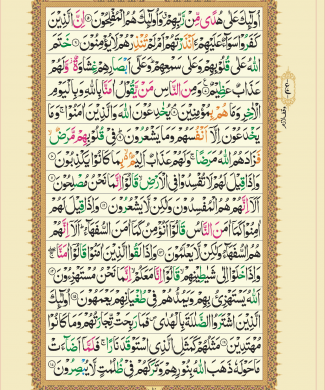 اُولٰٓئِكَ عَلٰى هُدًى مِّنْ رَّبِّهِمْ وَاُولٰٓئِكَ هُمُ الْمُفْلِحُوْنَ ۝ اِنَّ الَّذِيْنَ
كَفَرُوْا سَوَآءٌ عَلَيْهِمْ ءَاَنْذَرْتَهُمْ اَمْ لَمْ تُنْذِرْهُمْ لَا يُؤْمِنُوْنَ ۝ خَتَمَ
اللّٰهُ عَلٰى قُلُوْبِهِمْ وَعَلٰى سَمْعِهِمْ وَعَلٰٓى اَبْصَارِهِمْ غِشَاوَةٌ وَّلَهُمْ
عَذَابٌ عَظِيْمٌ ۝ وَمِنَ النَّاسِ مَنْ يَّقُوْلُ اٰمَنَّا بِاللّٰهِ وَبِالْيَوْمِ
الْاٰخِرِ وَمَا هُمْ بِمُؤْمِنِيْنَ ۝ يُخٰدِعُوْنَ اللّٰهَ وَالَّذِيْنَ اٰمَنُوْا وَمَا
يَخْدَعُوْنَ اِلَّآ اَنْفُسَهُمْ وَمَا يَشْعُرُوْنَ ۝ فِيْ قُلُوْبِهِمْ مَّرَضٌ
فَزَادَهُمُ اللّٰهُ مَرَضًا وَلَهُمْ عَذَابٌ اَلِيْمٌ بِمَا كَانُوْا يَكْذِبُوْنَ ۝
وَاِذَا قِيْلَ لَهُمْ لَا تُفْسِدُوْا فِى الْاَرْضِ قَالُوْٓا اِنَّمَا نَحْنُ مُصْلِحُوْنَ ۝
اَلَآ اِنَّهُمْ هُمُ الْمُفْسِدُوْنَ وَلٰكِنْ لَّا يَشْعُرُوْنَ ۝ وَاِذَا قِيْلَ لَهُمْ
اٰمِنُوْا كَمَآ اٰمَنَ النَّاسُ قَالُوْٓا اَنُؤْمِنُ كَمَآ اٰمَنَ السُّفَهَآءُ اَلَآ اِنَّهُمْ
هُمُ السُّفَهَآءُ وَلٰكِنْ لَّا يَعْلَمُوْنَ ۝ وَاِذَا لَقُوا الَّذِيْنَ اٰمَنُوْا قَالُوْٓا اٰمَنَّا
وَاِذَا خَلَوْا اِلٰى شَيٰطِيْنِهِمْ قَالُوْٓا اِنَّا مَعَكُمْ اِنَّمَا نَحْنُ مُسْتَهْزِءُوْنَ ۝
اَللّٰهُ يَسْتَهْزِئُ بِهِمْ وَيَمُدُّهُمْ فِيْ طُغْيَانِهِمْ يَعْمَهُوْنَ ۝ اُولٰٓئِكَ
الَّذِيْنَ اشْتَرَوُا الضَّلٰلَةَ بِالْهُدٰى فَمَا رَبِحَتْ تِّجَارَتُهُمْ وَمَا كَانُوْا
مُهْتَدِيْنَ ۝ مَثَلُهُمْ كَمَثَلِ الَّذِى اسْتَوْقَدَ نَارًا فَلَمَّآ اَضَآءَتْ
مَا حَوْلَهٗ ذَهَبَ اللّٰهُ بِنُوْرِهِمْ وَتَرَكَهُمْ فِيْ ظُلُمٰتٍ لَّا يُبْصِرُوْنَ ۝